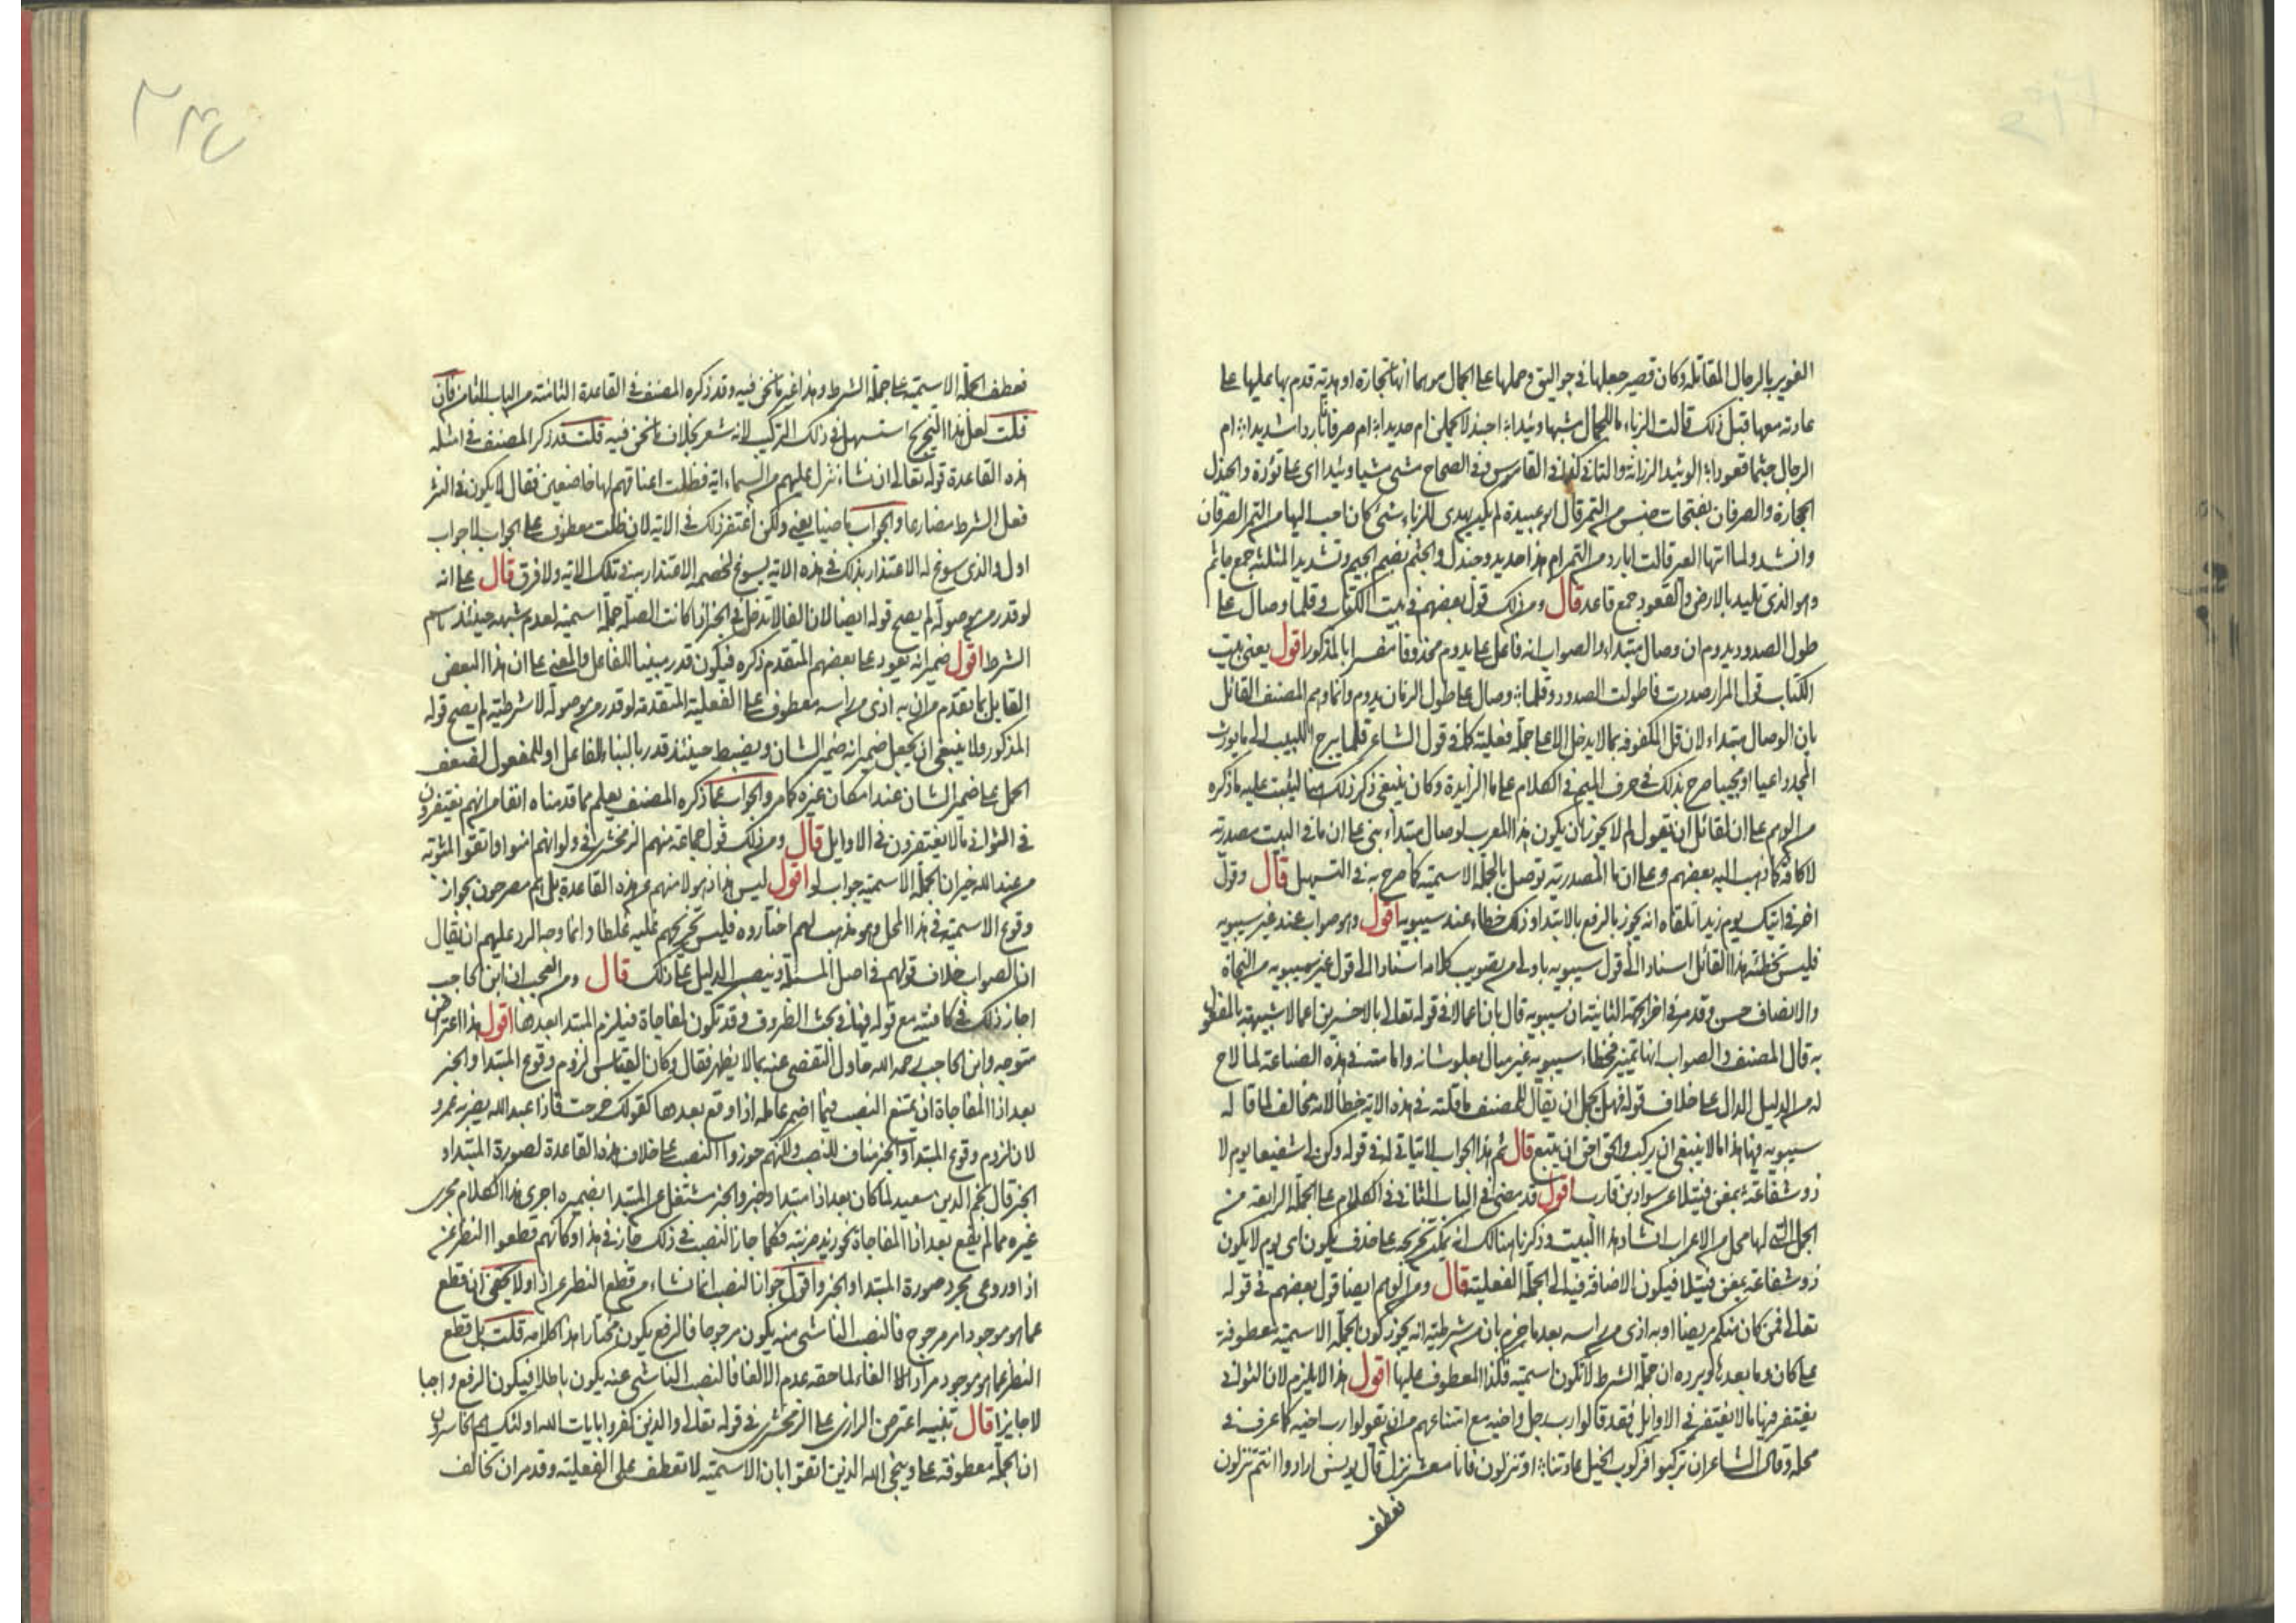 الغوير بالرجال المقاتلة وكان قصير جعلها في جواليق وحملها على الجمال موهما انها تجارة او هدية قدم بها عليها على
عادته معها قبل ذلك قالت الزباء ما للجمال مشيها وئيدا اجندلا يحملن ام حديدا ام صرفانا باردا شديدا ام
الرجال جثما قعودا الوئيد الرزانة والتاني كذا في القاموس وفي الصحاح مشى مشيا وئيدا اى على تؤدة والجندل
الحجارة والصرفان بفتحات جنس من التمر قال ابو عبيدة لم يكن يهدى للزباء شئ كان احب اليها من التمر الصرفان
وانشد ولما اتتها العير قالت ابارد من التمر ام هذا حديد وجندل والجثم بضم الجيم وتشديد المثلثة جمع جاثم
وهو الذي تلبد بالارض والقعود جمع قاعد قال ومن ذلك قول بعضهم في بيت الكتاب وقلما وصال على
طول الصدود يدوم ان وصال مبتداء والصواب انه فاعل يدوم محذوفا مفسرا بالمذكور اقول يعنى بيت
الكتاب قول المرار صددت فاطولت الصدود وقلما وصال على طول الزمان يدوم وانما وهم المصنف القائل
بان الوصال مبتداء لان قل المكفوفة بما لا يدخل الا على جملة فعلية كما في قول الشاعر قلما يبرح اللبيب الى ما يورث
المجد داعيا او مجيبا صرح بذلك في حرف الميم في الكلام على ما الزايدة وكان ينبغي ذكر ذلك هنا ليثبت عليه ما ذكره
من الوهم على ان لقائل ان يقول لم لا يجوز ان يكون هذا المعرب لوصال مبتداء بنى على ان ما في البيت مصدرية
لا كافة كما ذهب اليه بعضهم وعلى ان ما المصدرية توصل بالجملة الاسمية كما صرح به في التسهيل قال وقول
اخر في اتيتك يوم زيدا تلقاه انه يجوز بالرفع بالابتدا وذلك خطاء عند سيبويه اقول وهو صواب عند غير سيبويه
فليس تخطئة هذا القائل استنادا الى قول سيبويه باولى من تصويب كلامه استنادا الى قول غير سيبويه من النحاة
والانصاف حسن وقد مر في اخر الجهة الثانية ان سيبويه قال بان اعمالا في قوله تعالى بالاخسرين اعمالا شبيهة بالمفعول
به قال المصنف والصواب انها تمييز فخطاء سيبويه غير مبال بعلو شانه وامامته في هذه الصناعة لما لاح
له من الدليل الدال على خلاف قوله فهل يجمل ان يقال للمصنف ما قلته في هذه الاية خطأ لانه مخالف لما قاله
سيبويه فيها هذا مما لا ينبغي ان يرتكب والحق احق ان يتبع قال ثم هذا الجواب لا يتاتى له في قوله وكن لى شفيعا يوم لا
ذو شفاعة بمغن فتيلا عن سواد بن قارب اقول قد مضى في الباب الثاني في الكلام على الجملة الرابعة من
الجمل التى لها محل من الاعراب انشاد هذا البيت وذكرنا هنالك انه يمكن تخريجه على حذف يكون اى يوم لا يكون
ذو شفاعة بمغن فتيلا فيكون الاضافة فيه الى الجملة الفعلية قال ومن الوهم ايضا قول بعضهم في قوله
تعالى فمن كان منكم مريضا او به اذى من راسه بعد ما جزم بان من شرطية انه يجوز كون الجملة الاسمية معطوفة
على كان وما بعدها ويرده ان جملة الشرط لا تكون اسمية فكذا المعطوف عليها اقول هذا لا يلزم لان الثوانى
يغتفر فيها ما لا يغتفر في الاوايل فقد قالوا رب رجل واخيه مع امتناعهم من ان يقولوا رب اخيه كما عرف في
محله وقال الشاعر ان تركبوا فركوب الخيل عادتنا او تنزلون فانا معشر نزل قال يونس ارادوا انتم تنزلون
فعطف
٢٣٤
فعطف الجملة الاسمية على جملة الشرط وهذا غير ما نحن فيه وقد ذكره المصنف في القاعدة الثامنة من الباب الثامن فان
قلت لعل هذا التخريج استسهل في ذلك التركيب لانه شعر بخلاف ما نحن فيه قلت قد ذكر المصنف في امثلة
هذه القاعدة قوله تعالى ان نشاء ننزل عليهم من السماء اية فظلت اعناقهم لها خاضعين فقال لا يكون في النثر
فعل الشرط مضارعا والجواب ماضيا يعنى ولكن اغتفر ذلك في الاية لان ظلت معطوف على الجواب لا جواب
اول والذى سوغ له الاعتذار بذلك في هذه الاية يسوغ لخصمه الاعتذار به في تلك الاية ولا فرق قال على انه
لو قدر من موصولة لم يصح قوله ايضا لان الفا لا تدخل في الخبر اذا كانت الصلة جملة اسمية لعدم شبهه حينئذ باسم
الشرط اقول ضمير انه يعود على بعضهم المتقدم ذكره فيكون قدر مبنيا للفاعل والمعنى على ان هذا البعض
القايل بما تقدم من ان به اذى من راسه معطوف على الفعلية المتقدمة لو قدر من موصولة لا شرطية لم يصح قوله
المذكور ولا ينبغي ان يجعل ضمير انه ضمير الشان ويضبط حينئذ قدر بالبناء للفاعل او للمفعول لضعف
الحمل على ضمير الشان عند امكان غيره كما مر والجواب عما ذكره المصنف يعلم مما قدمناه انفا من انهم يغتفرون
في الثوانى ما لا يغتفرون في الاوايل قال ومن ذلك قول جماعة منهم الزمخشرى في ولو انهم امنوا واتقوا لمثوبة
من عند الله خير ان الجملة الاسمية جواب لو اقول ليس هذا ذهولا منهم عن هذه القاعدة بل هم مصرحون بجواز
وقوع الاسمية في هذا المحل وهو مذهب لهم اختاروه فليس تخريجهم عليه غلطا وانما وجه الرد عليهم ان يقال
ان الصواب خلاف قولهم في اصل المسئلة وينصب الدليل على ذلك قال ومن العجب ان ابن الحاجب
اجاز ذلك في كافيته مع قوله فيها في بحث الظروف وقد تكون لمفاجاة فيلزم المبتدا بعدها اقول هذا اعتراض
متوجه وابن الحاجب رحمه الله حاول التفصى عنه بما لا يظهر فقال وكان القياس لزوم وقوع المبتدا والخبر
بعد اذا المفاجاة ان يمتنع النصب فيما اضمر عامله اذا وقع بعدها كقولك خرجت فاذا عبد الله يضربه عمرو
لان لزوم وقوع المبتدا والخبر مناف للنصب ولكنهم جوزوا النصب على خلاف هذه القاعدة لصورة المبتدا و
الخبر قال نجم الدين سعيد لما كان بعد اذا مبتدا وخبر والخبر مشتغل عن المبتدا بضميره اجرى هذا الكلام مجرى
غيره مما لم يقع بعد اذا المفاجاة نحو زيد ضربته فكما جاز النصب في ذلك جاز في هذا وكانهم قطعوا النظر عن
اذا وروعى مجرد صورة المبتدا والخبر واقول جواز النصب انما نشاء من قطع النظر عن اذا ولا يخفى ان قطع
عما هو موجود امر مرجوح فالنصب الناشى منه يكون مرجوحا فالرفع يكون مختارا هذا كلامه قلت بل قطع
النظر عما هو موجود مراد الا الغاء لما حقه عدم الالغا فالنصب الناشى عنه يكون باطلا فيكون الرفع واجبا
لا جايزا قال تنبيه اعترض الرازى على الزمخشرى في قوله تعالى والذين كفروا بايات الله اولئك هم الخاسرون
ان الجملة معطوفة على وينجى الله الذين اتقوا بان الاسمية لا تعطف على الفعلية وقد مر ان تخالف